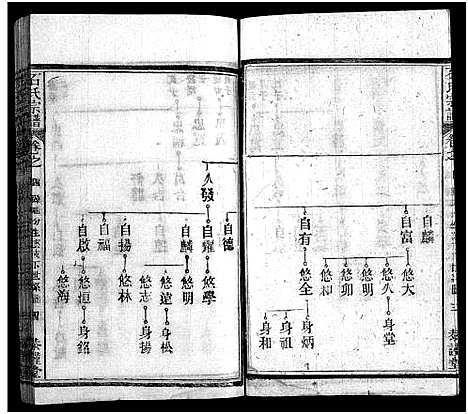 石氏宗譜
卷之
自麟
自富
悠大
悠久
身堂
悠明
悠卯
悠和
自有
悠全
身炳
身祖
身和
久發
自德
自耀
悠學
自麟
悠明
悠遠
身松
悠志
身揚
自揚
悠林
自福
自啟
悠恒
身銘
悠海
石氏宗譜
卷之